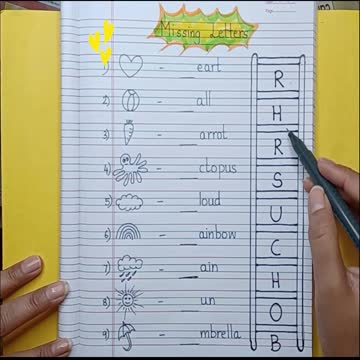 Missing Letters
1) - _eart
2) - _all
3) - _arrot
4) - _ctopus
5) - _loud
6) - _ainbow
7) - _ain
8) - _un
9) - _mbrella
R
H
R
S
U
C
H
O
B